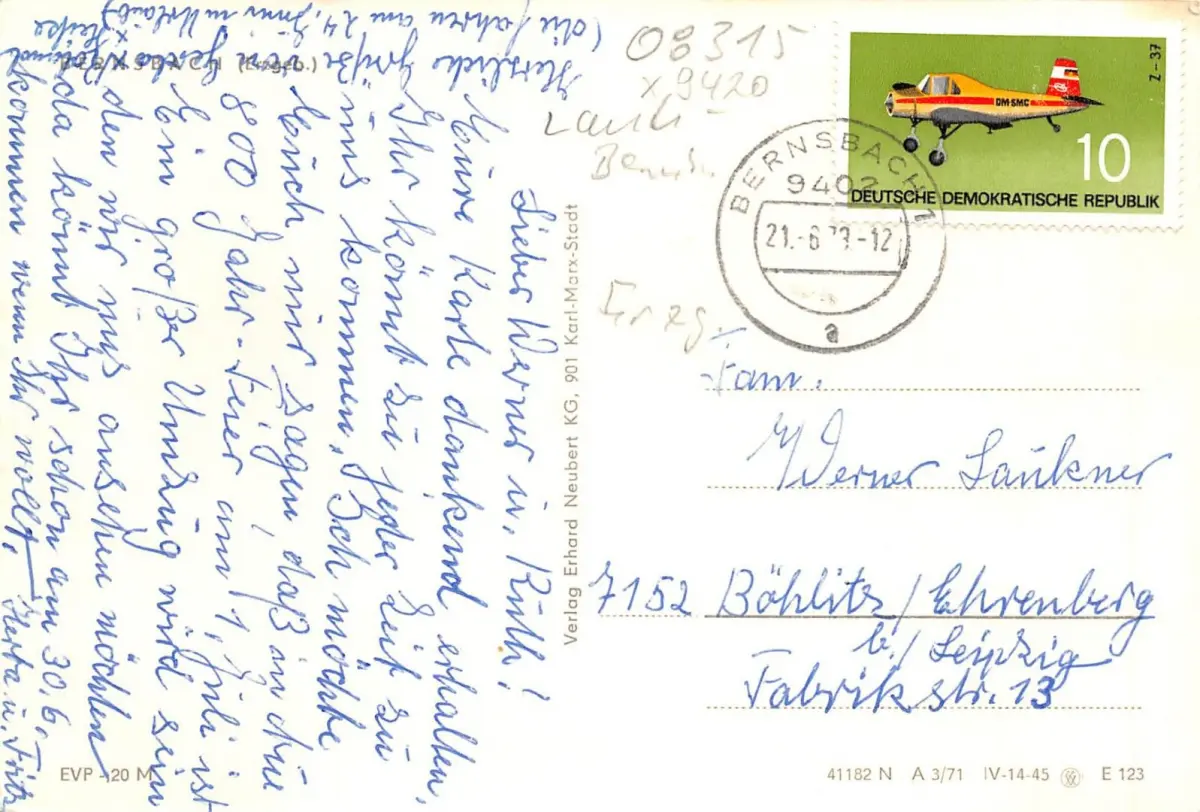 BERNSBACH (Erzgeb.)
Lieber Werner u. Ruth!
Eure Karte dankend erhalten,
Ihr könnt zu jeder Zeit zu
uns kommen. Ich möchte
Euch nur sagen, daß in Aue
800 Jahr-Feier am 1. Juli ist
Ein großer Umzug wird sein
den wir uns ansehen möchten
da könnt Ihr schon am 30.6.
kommen wenn Ihr wollt. Herta u. Fritz
Herzliche Grüße
von Gerda,
x Heike
(die fahren am 24. Juni in Urlaub)
Verlag Erhard Neubert KG, 901 Karl-Marx-Stadt
08315
x 9420
Erzg.
BERNSBACH 1
9402
21.-6.73-12
a
DM-SMC
Z-37
10
DEUTSCHE DEMOKRATISCHE REPUBLIK
Fam.
Werner Laukner
7152 Böhlitz/Ehrenberg
b./Leipzig
Fabrikstr. 13
EVP -,20 M
41182 N A 3/71 IV-14-45 E 123